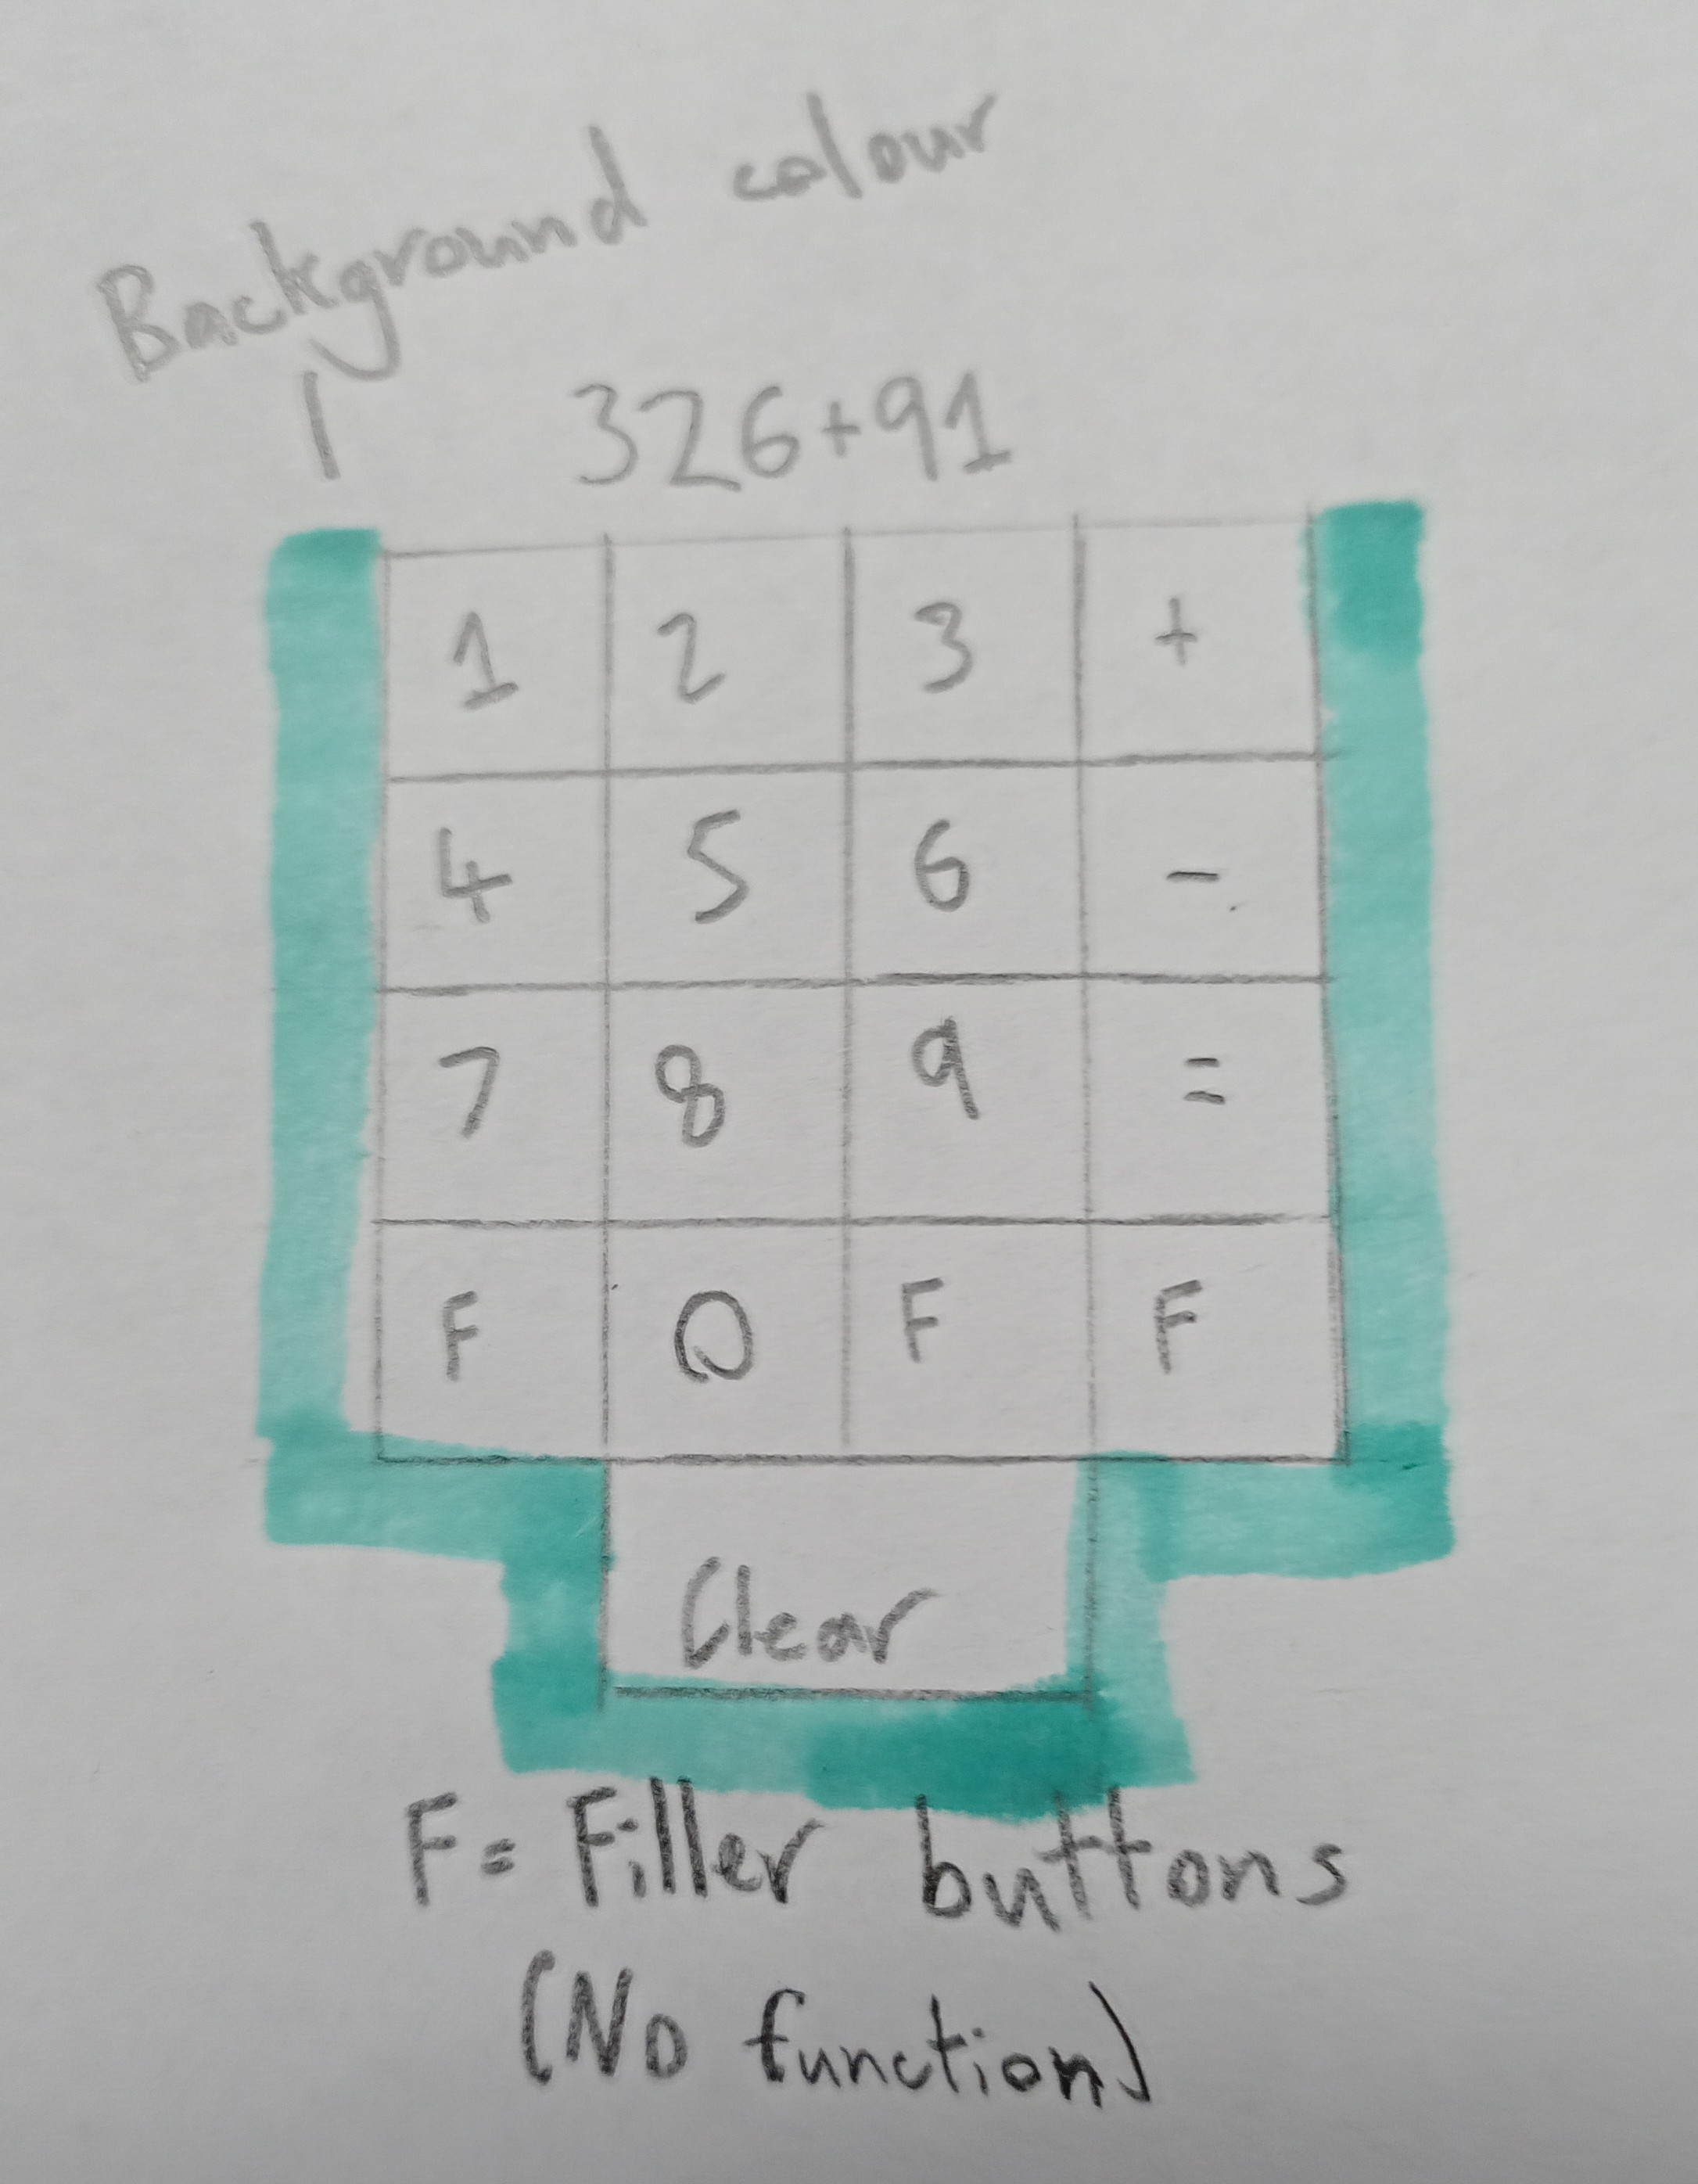 Background colour
326+91
1 2 3 +
4 5 6 -
7 8 9 =
F 0 F F
Clear
F= Filler buttons
(No function)